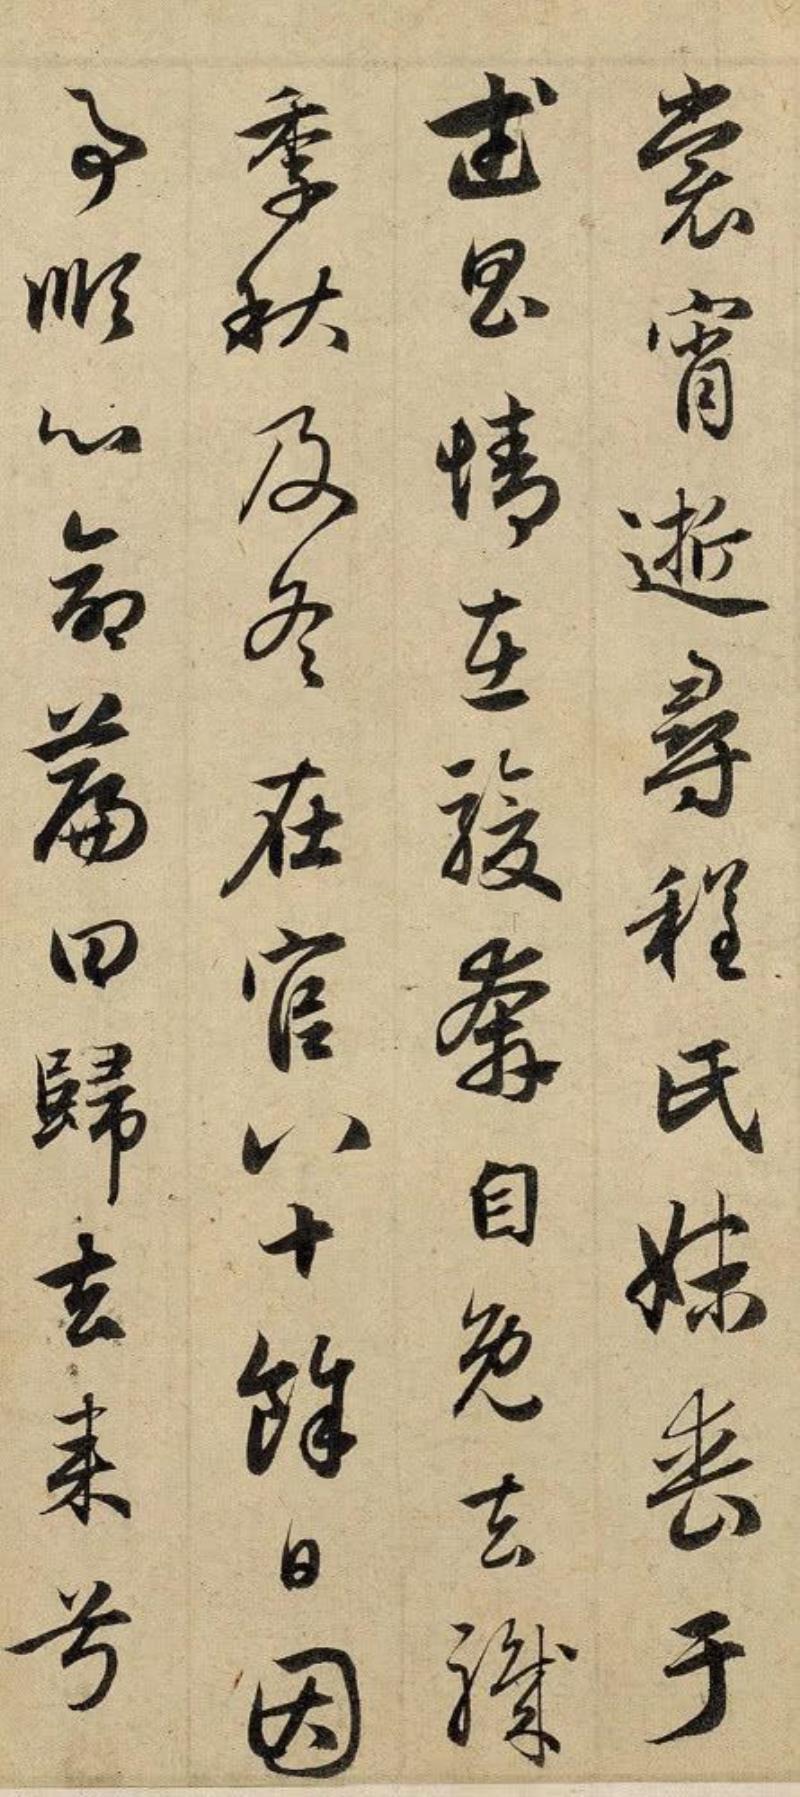 裳宵逝尋程氏妹喪于
武昌情在駿奔自免去職
季秋及冬在官八十餘日因
事順心命篇曰歸去来兮